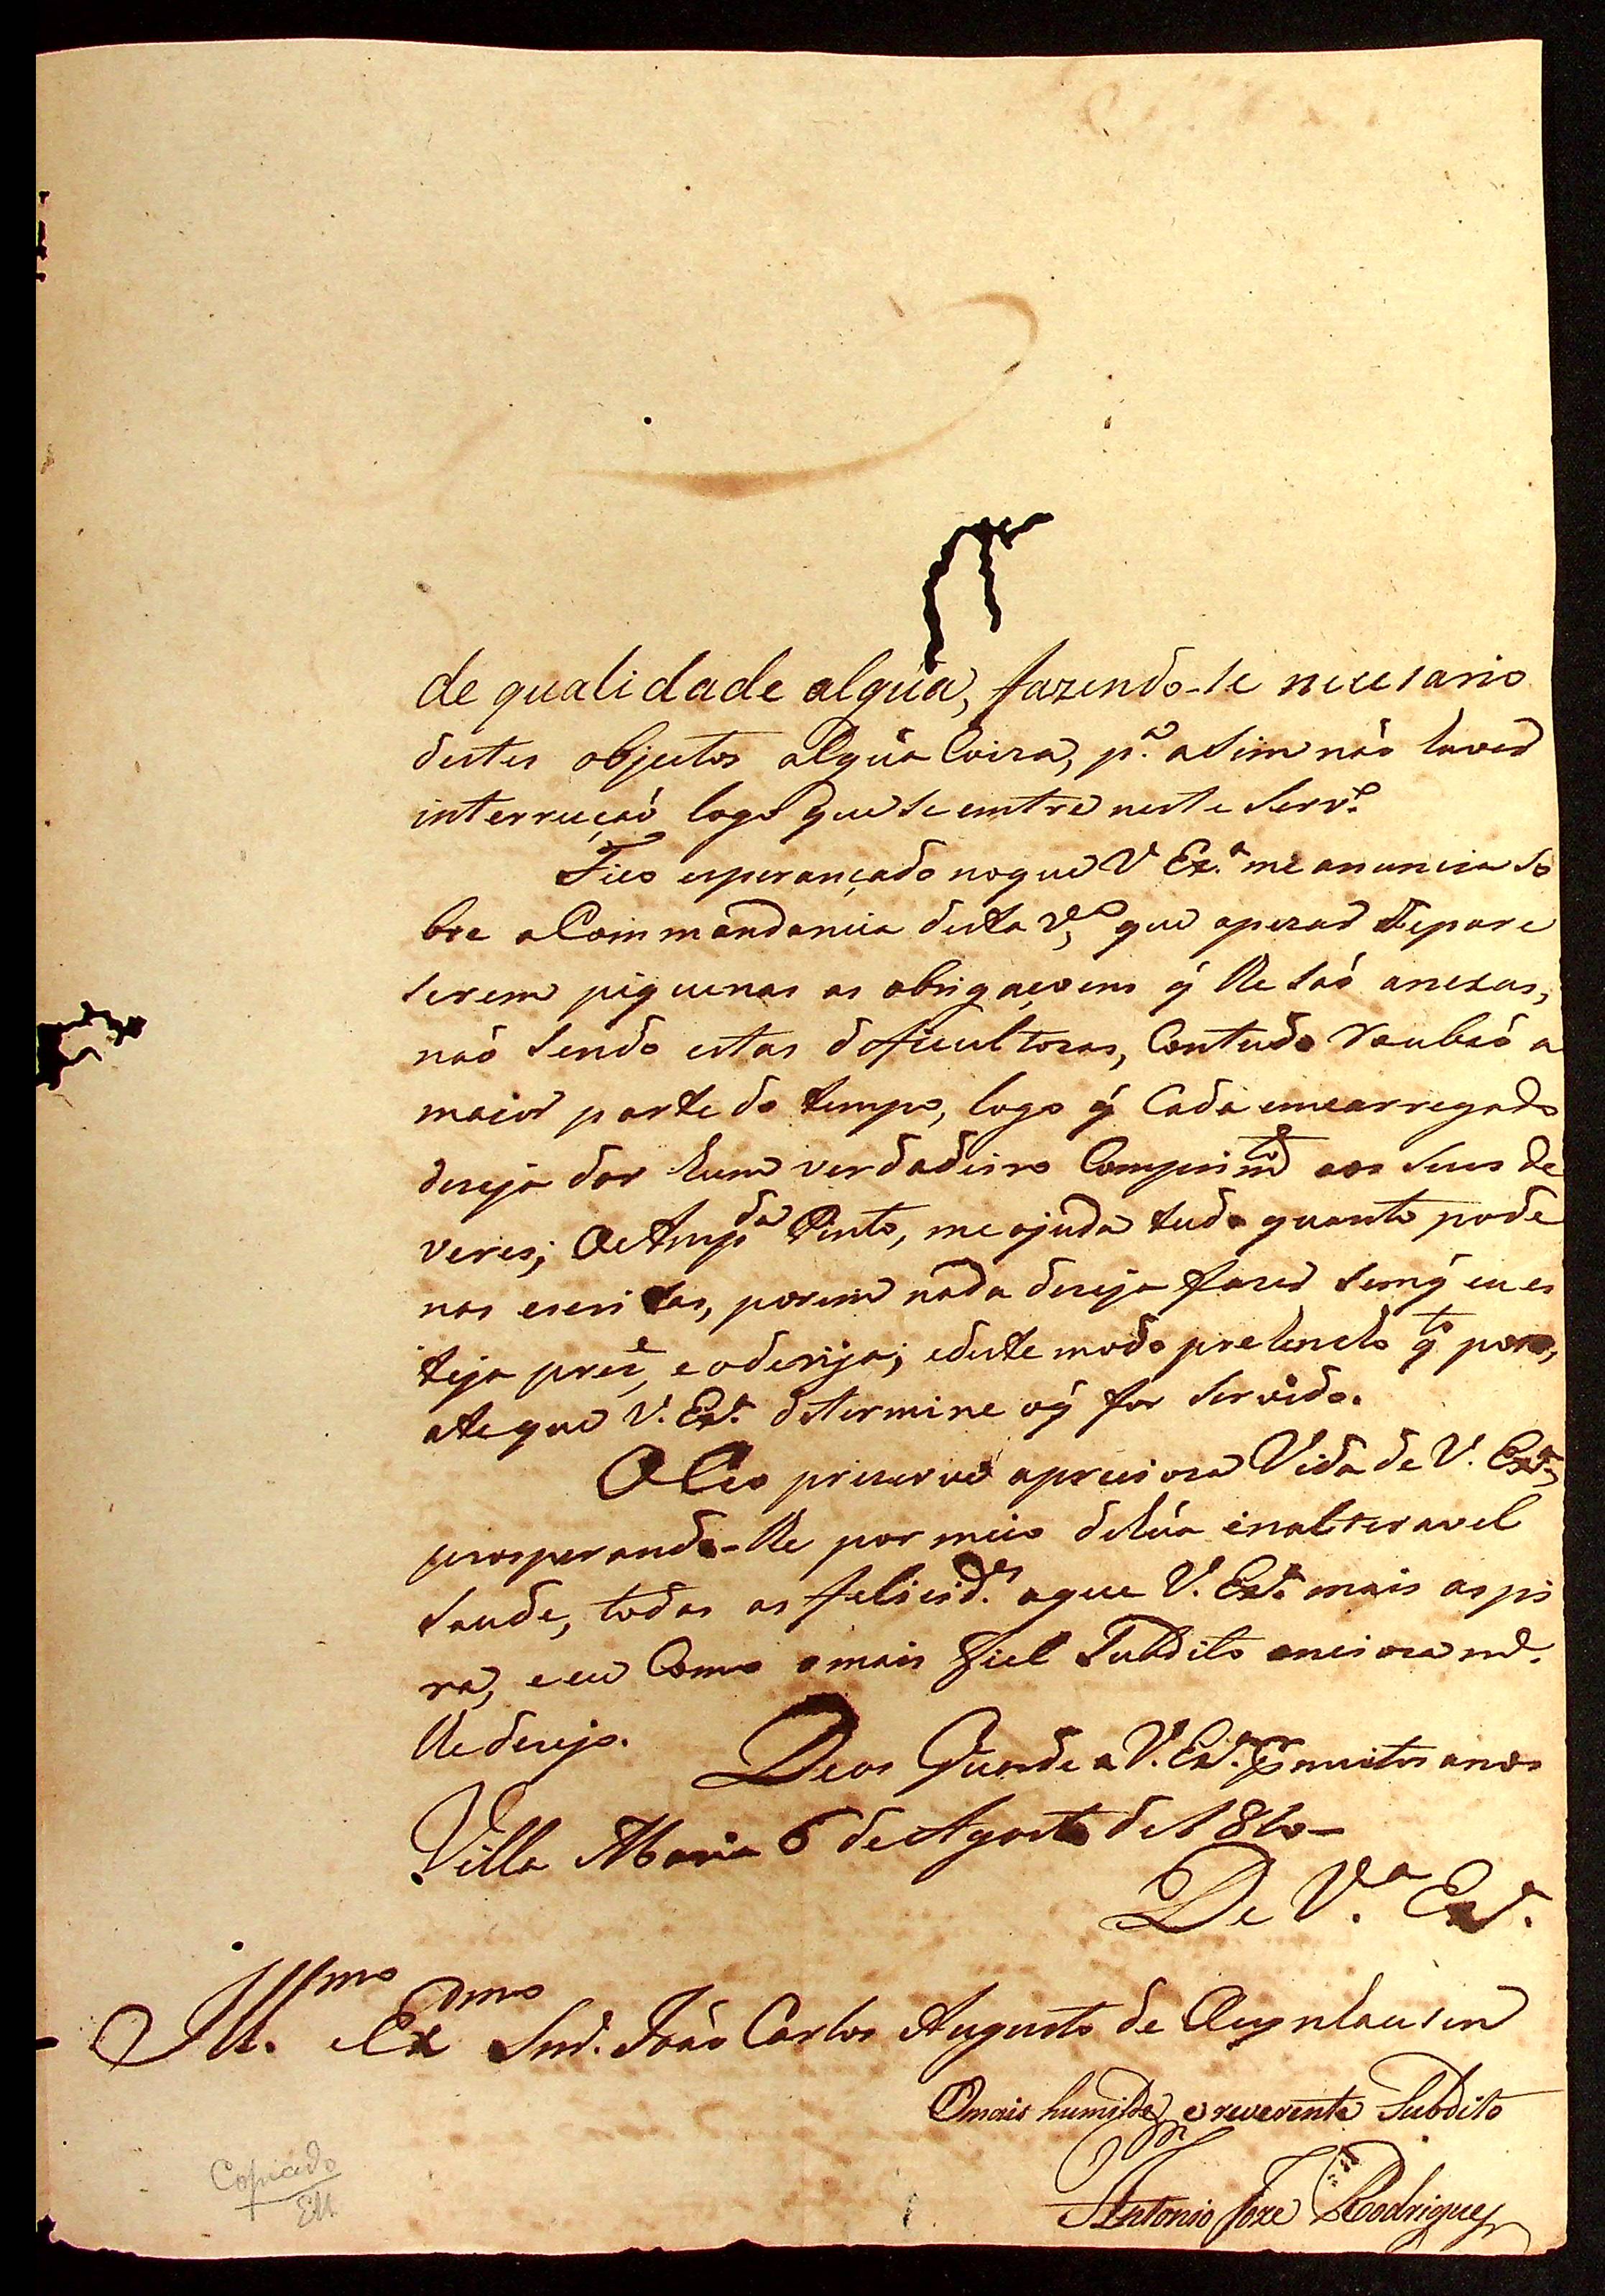 de qualidade algúa, fazendo-se necesario
destes objectos algúa Coiza, p.ª asim não haver
interruçaõ logo que se emtre neste Serv.º
Fico esperançado no que V Ex.ª me anuncia so
bre a Commandancia desta V.ª que apezar de pare
serem piquenas as obrigaçoens q̃ lhe saõ anexas,
naõ sendo estas dificultozas, Contudo roubaõ a
maior parte do tempo, logo q̃ Cada emcarregado
dezeja dar hum verdadeiro Comprim.to aos seus de
veres; Pinto, me ajuda tudo quanto pode
nas escritas, porem nada dezeja fazer sem q̃ eu es
teja prez.e, e o derija; e deste modo pretendo q.to
ate que V. Ex.ª determine o q̃ for servido.
O Ceo prezerve a precioza Vida de V. Ex.ª,
prosperando-lhe por meio de húa inalteravel
saude, todas as felicid.es a que V. Ex.ª mais aspi
ra, e eu Como o mais Fiel Subdito ancioza m.e
lhe dezejo.
Deos Guarde a V. Ex.ª por muitos anos
Villa Maria 6 de Agosto de 1810-
De V.ª Ex.ª
Ill.mo e Ex.mo Snr. João Carlos Augusto de Oeynhausen
O mais humilde, e reverente Subdito
Antonio Joze Rodrigues
Copiado
EM.